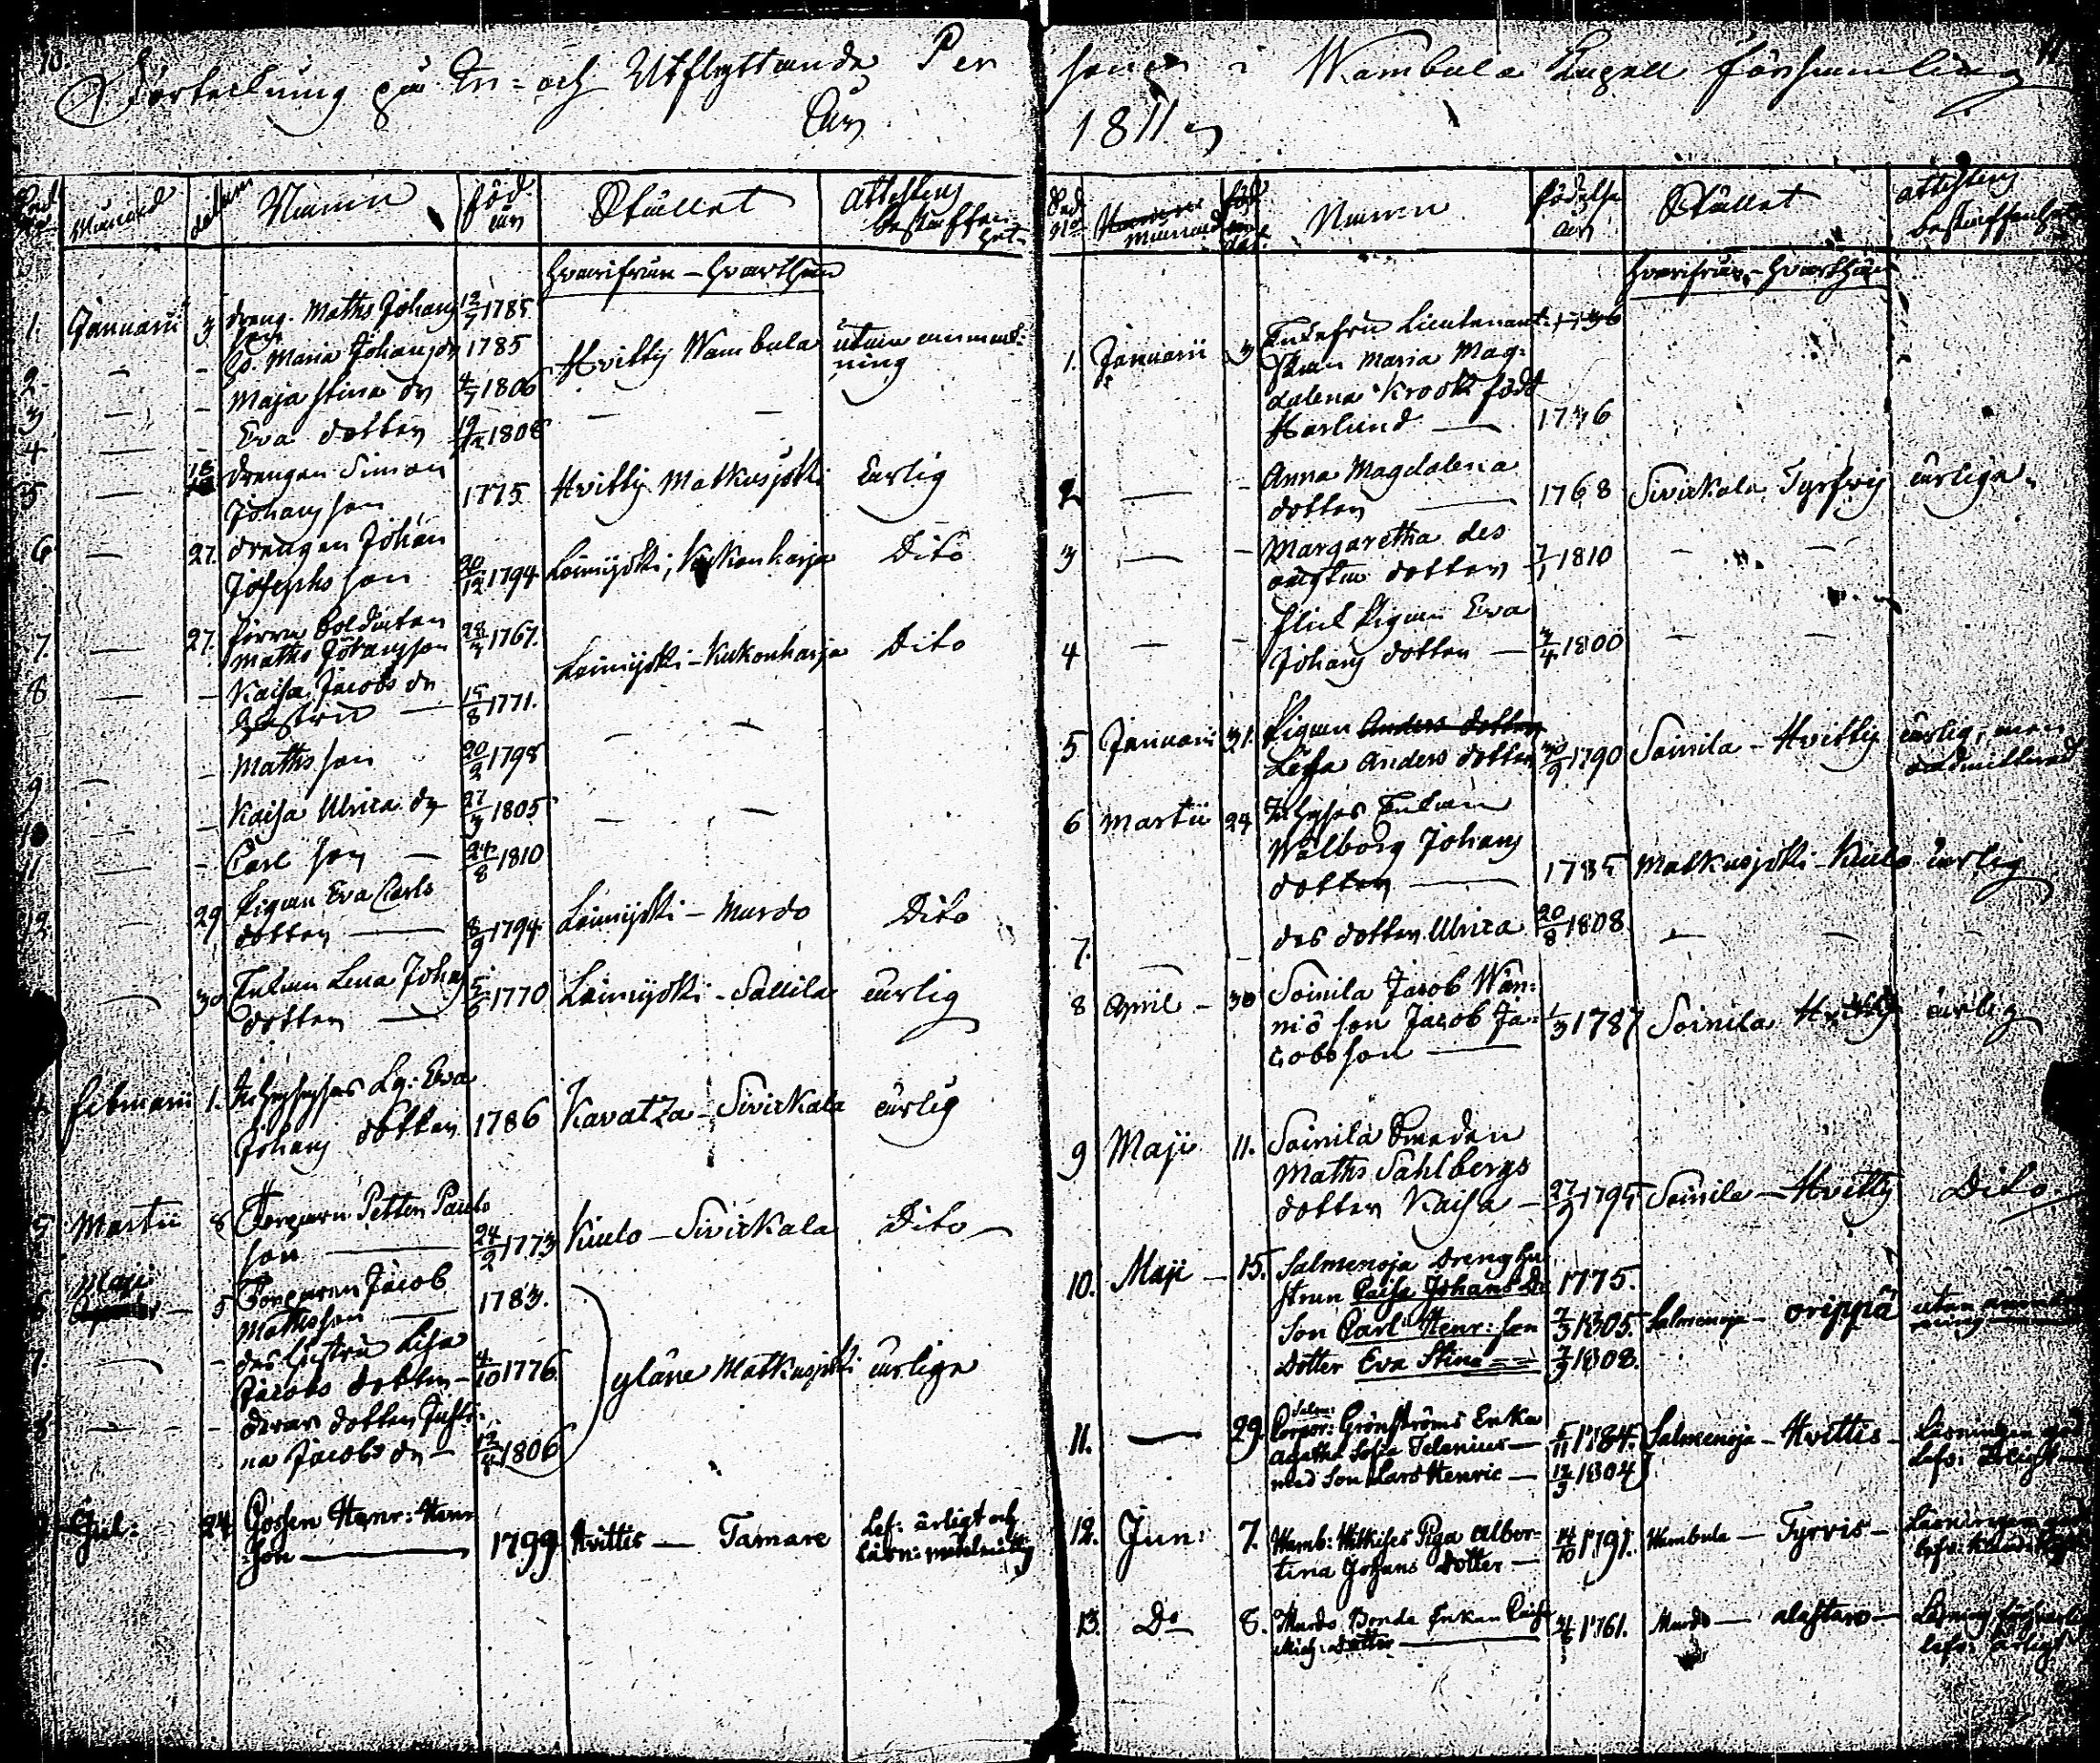 10
Förteckning på In- och Utflyttande Per
År
Månad
datum
Namn
föd.
år
Stället
Attestens
beskaffen-
het
hvarifrån - hvarthän
1. Januarii 3 dreng. Maths Johans
son 12/7 1785
2 - - H. Maria Johans dr 1785 Hvittis Wambula utan anmärk-
ning
3 - - Maja Stina dr 4/7 1806
4 - - Eva dotter 19/12 1808 - -
5 - 18 drengen Simon
Johansson 1775 Hvittis Matkusjoki Ärlig
6 - 27. drengen Johan
Josephsson 20/12 1794 Loimijoki, Kukonharja Dito
7. - 27. förra Soldaten
Maths Johansson 28/ 1767. Loimijoki - Kukonharja Dito
8 - - Kaisa Jacobs dr
Hustru - 15/8 1771.
9 - - Maths son 20/2 1798 - -
10 - - Kaisa Ulrica dr 27/3 1805 - -
11 - - Carl son - 24/8 1810
12 - 29 Pigan Eva Carls
dotter - 8/9 1794. Loimijoki - Murdo Dito
- 30 Enkan Lena Johans
dotter - 5/5 1770 Loimijoki - Sallila ärlig
Februarii 1. Lg: Eva
Johans dotter 1786 Kavatza - Sivickala ärlig
5 Martii 8 Torparn Petter Pauls
son - 24/2 1773 Kiulo - Sivickala Dito -
Maji
5 Torparen Jacob
Mathsson 1783.
7. - - des Hustru Lisa
Jacobs dotter - 4/10 1776. Yläne Matkusjoki ärliga
8 - - deras dotter Justi-
na Jacobs dr - 12/4 1806
9 Jul: 24 Gossen Henr: Henr
:son - 1799 Hvittis - Tamare Lef: ärligt och
Läsn: medelmåttig
11
soner i Wambula Kapell församling
1811
Ord.
No
Månad
dat.
Namn
födelse
år
Stället
attestens
beskaffenhet
hvarifrån - hvarthän
1. Januarii 3 Enkefru Lieutenant-
skan Maria Mag-
dalena Krook född
Harlund - 1746
2 - - Anna Magdalena
dotter - 1768 Sivickala Tyrfvis ärliga.
3 - - Margaretha des
dotter 7/1 1810 - -
4 - - flick Pigan Eva
Johans dotter - 3/4 1800 - -
5 Januari 31. Pigan Anders dotter
Lisa Anders dotter 30/9 1790 Soinila - Hvittis ärlig, men
oadmitterad
6 Martii 24 Inhyses Enkan
Walborg Johans
dotter - 1785 Matkusjoki - Kiulo ärlig
7. - - des dotter Ulrica 20/8 1808 - - -
8 April - 30 Soinila Jacob Wän-
niö son Jacob Ja-
cobsson - 1/3 1787 Soinila Hvittis ärlig
9 Maji 11. Soinila Smeden
Maths Sahlbergs
dotter Kaisa - 27/ 1795 Soinila - Hvittis Dito.
10. Maji - 15. Salmenoja Dreng hu
strun Caisa Johans Dr 1775.
Son Carl Henr: son 7/3 1805. Salmenoja - Orippä utan anmärk
ning
Dotter Eva Stina 7/3 1808.
11. - 29. Salm:
Corpor: Grönströms Enka
Agatha Sofia Telenius - 5/11 1784. Salmenoja - Hvittis - Läsningen god
med Son Lars Henric - 12/3 1804
12. Jun: 7. Wamb: Piga Alber-
tina Johans Dotter - 14/10 1791. Wambula - Tyrvis - Läsningen god
13. Do 8. Murdo Bonde Enkan Caisa
Mich: Dotter - 1761. Murdo - Alastaro - Läsning försvarlig
lefv: ärligt